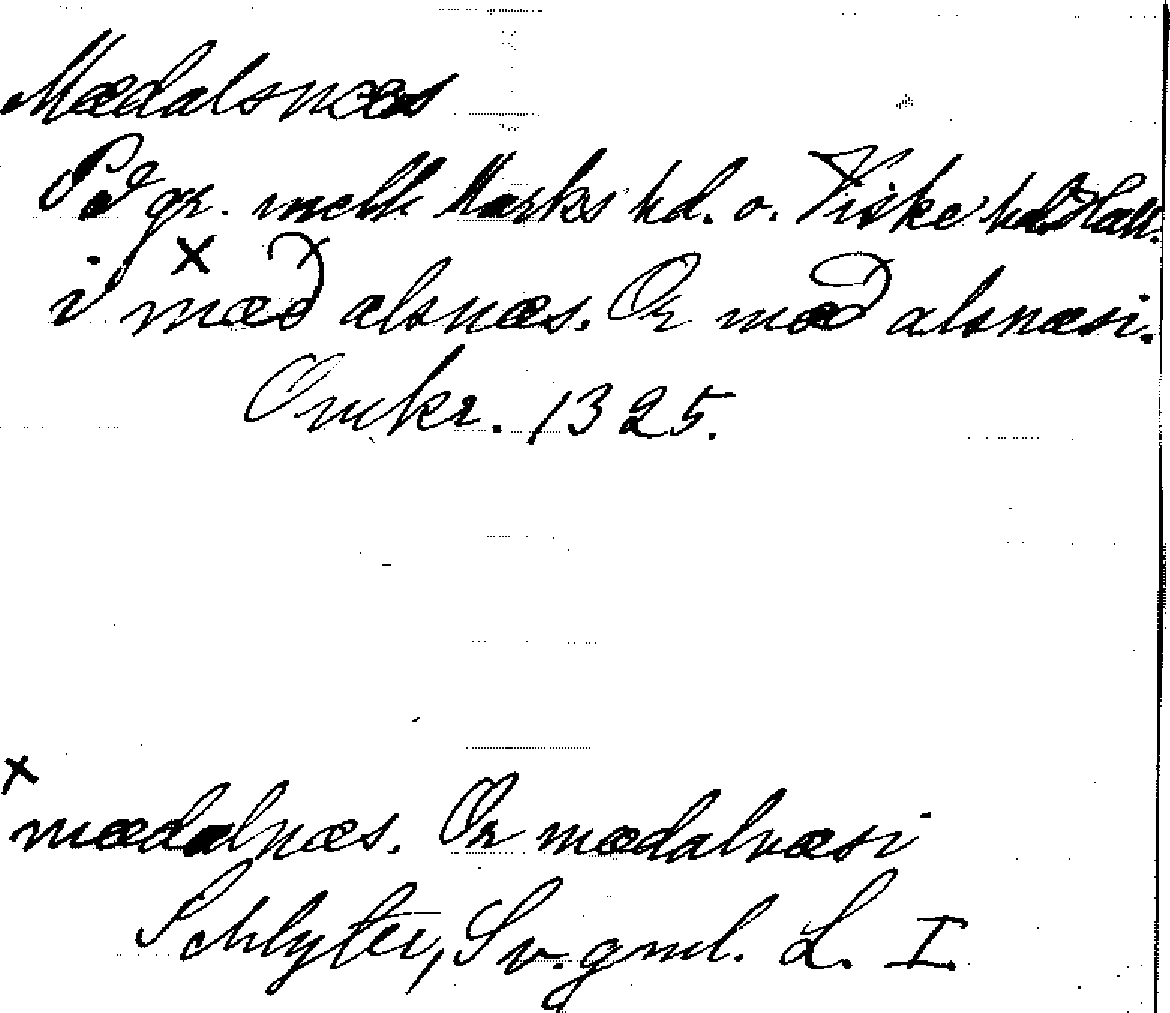 Mædalsnæs
På gr. mell. Marks hd. o. Viske hd. Hall.
i × mæð alsnæs. Or mæð alsnæsi.
Omkr. 1325.
× mædalnæs. Or mædalnæsi
Schlyter, Sv. gml. L. I.